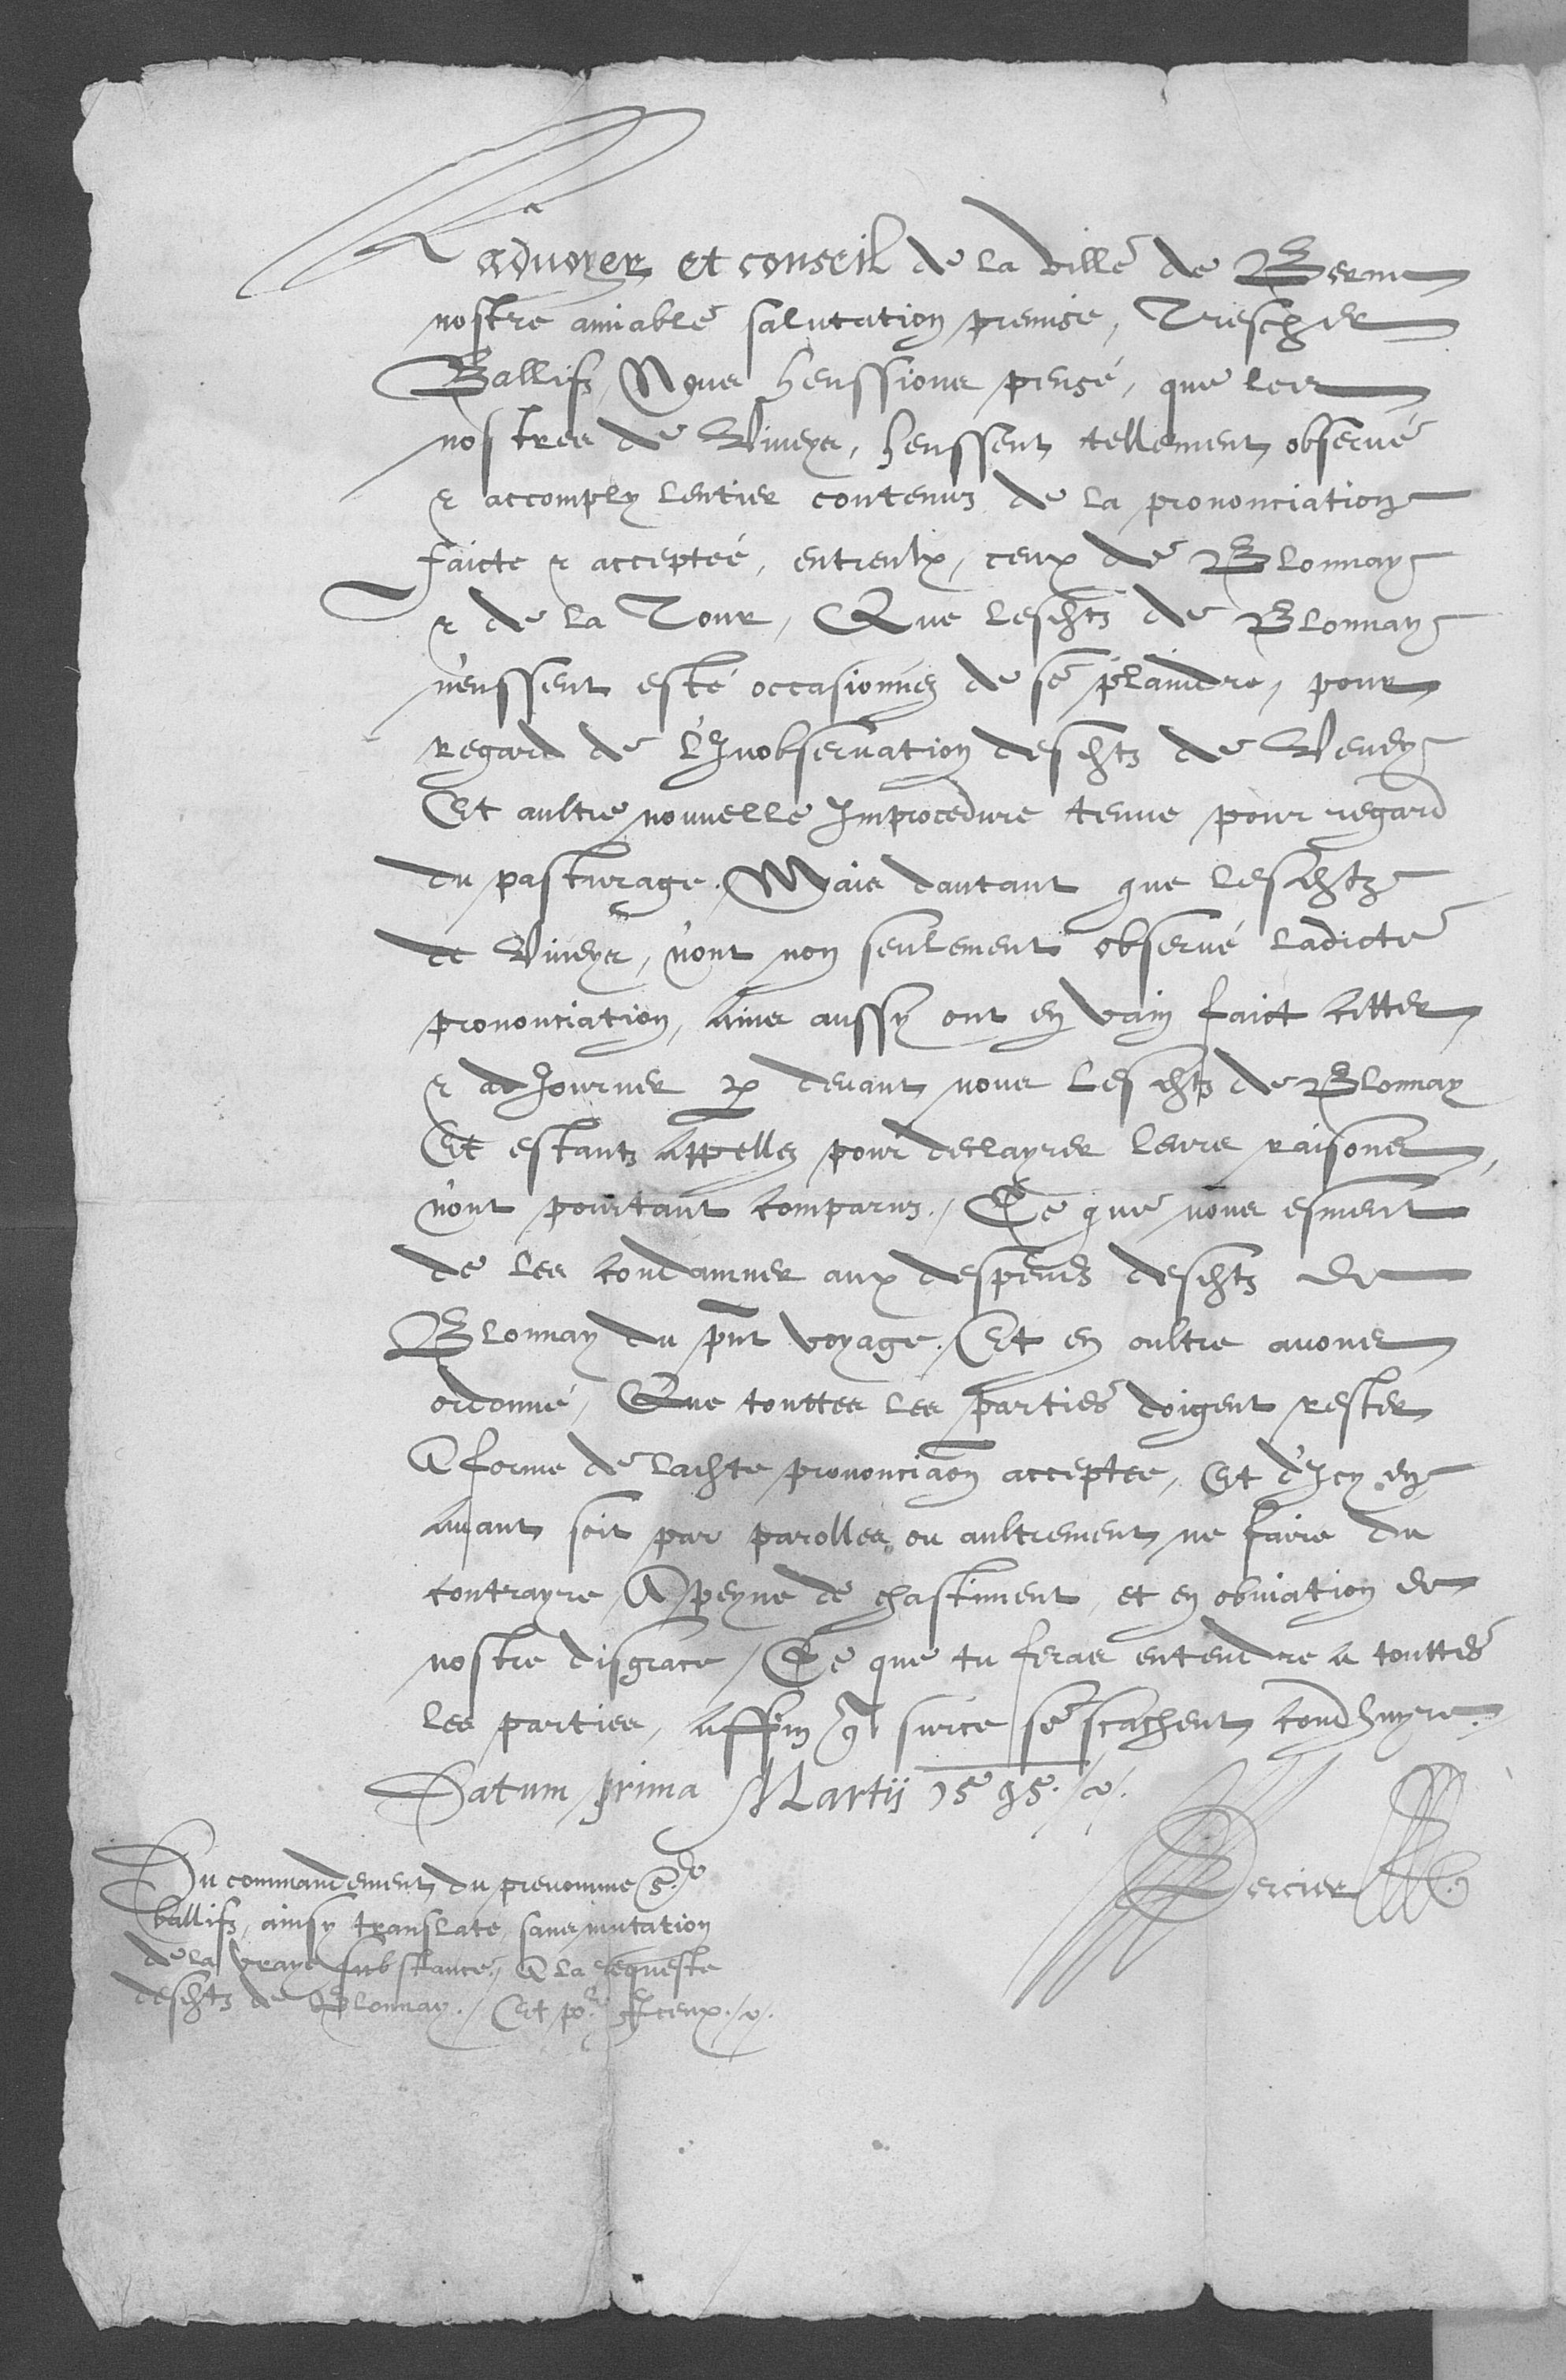 Ladvoyer et conseil de la ville de Berne
nostre amiable salutation premise, Trescher
Ballifz, Nous heussions pensé, que les
nostres de Viveys, heussent tellement observé
& accomply lentier contenuz de la prononciation
faicte & acceptée, entreulx, ceux de Blonnay
& de la Tour, Que lesdtz de Blonnay
n'eussent esté occasionnez de se plaindre, pour
regard de l'Inobservation desdtz de Vevey
Et aultre nouvelle Improcedure tenue pour regard
du pasturage. Mais dautant que lesdtz
de Viveys, n'ont non seulement observé ladicte
prononciation, Ains aussy ont en vain faict citter
& adjourner p devant nous lesdtz de Blonnay
Et estantz Appellez pour declayrer leurs raisons,
n'ont pourtant comparuz. Ce que nous esmeut
de les condamner aux despends desdtz de
Blonnay du pnt voyage. Et en oultre avons
ordonné, Que touttes les parties doigent rester
A forme de ladte prononciaon acceptee, Et d'Icy en
avant soit par parolles ou aultrement ne faire du
contrayre A peyne de chastiment, et en obviation de
nostre disgrace, Ce que tu feras entendre a touttes
les parties, Affin q surce se scachent condhuyre.
Datum prima Martij 1595.
Du commandement du prenomme Sr
ballifz, ainsy translate, sans mutation
de la vraye substance, A la requeste
desdtz de Blonnay. Et pr Iceux.
Dercier